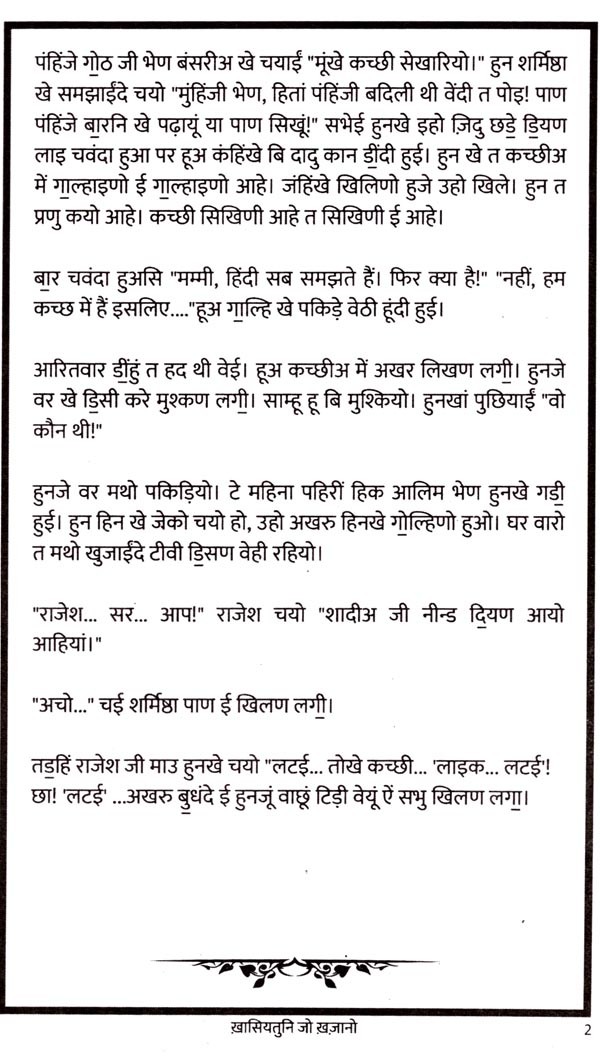 पंहिंजे गो॒ठ जी भेण बंसरीअ खे चयाईं "मूंखे कच्छी सेखारियो।" हुन शर्मिष्ठा
खे समझाईंदे चयो "मुंहिंजी भेण, हितां पंहिंजी बदिली थी वेंदी त पोइ! पाण
पंहिंजे बा॒रनि खे पढ़ायूं या पाण सिखूं!" सभेई हुनखे इहो ज़िदु छडे॒ डि॒यण
लाइ चवंदा हुआ पर हूअ कंहिंखे बि दादु कान डीं॒दी हुई। हुन खे त कच्छीअ
में गा॒ल्हाइणो ई गा॒ल्हाइणो आहे। जंहिंखे खिलिणो हुजे उहो खिले। हुन त
प्रणु कयो आहे। कच्छी सिखिणी आहे त सिखिणी ई आहे।
बा॒र चवंदा हुअसि "मम्मी, हिंदी सब समझते हैं। फिर क्या है!" "नहीं, हम
कच्छ में हैं इसलिए...."हूअ गा॒ल्हि खे पकिड़े वेठी हूंदी हुई।
आरितवार डीं॒हुं त हद थी वेई। हूअ कच्छीअ में अखर लिखण लगी॒। हुनजे
वर खे डि॒सी करे मुश्कण लगी॒। साम्हू हू बि मुश्कियो। हुनखां पुछियाईं "वो
कौन थी!"
हुनजे वर मथो पकिड़ियो। टे महिना पहिरीं हिक आलिम भेण हुनखे गडी॒
हुई। हुन हिन खे जेको चयो हो, उहो अखरु हिनखे गो॒ल्हिणो हुओ। घर वारो
त मथो खुजाईंदे टीवी डि॒सण वेही रहियो।
"राजेश... सर... आप!" राजेश चयो "शादीअ जी नीन्ड दि॒यण आयो
आहियां।"
"अचो..." चई शर्मिष्ठा पाण ई खिलण लगी॒।
तड॒हिं राजेश जी माउ हुनखे चयो "लटई... तोखे कच्छी... 'लाइक... लटई'!
छा! 'लटई' ...अखरु बु॒धंदे ई हुनजूं वाछूं टिड़ी वेयूं ऐं सभु खिलण लगा॒।
ख़ासियतुनि जो ख़ज़ानो
2